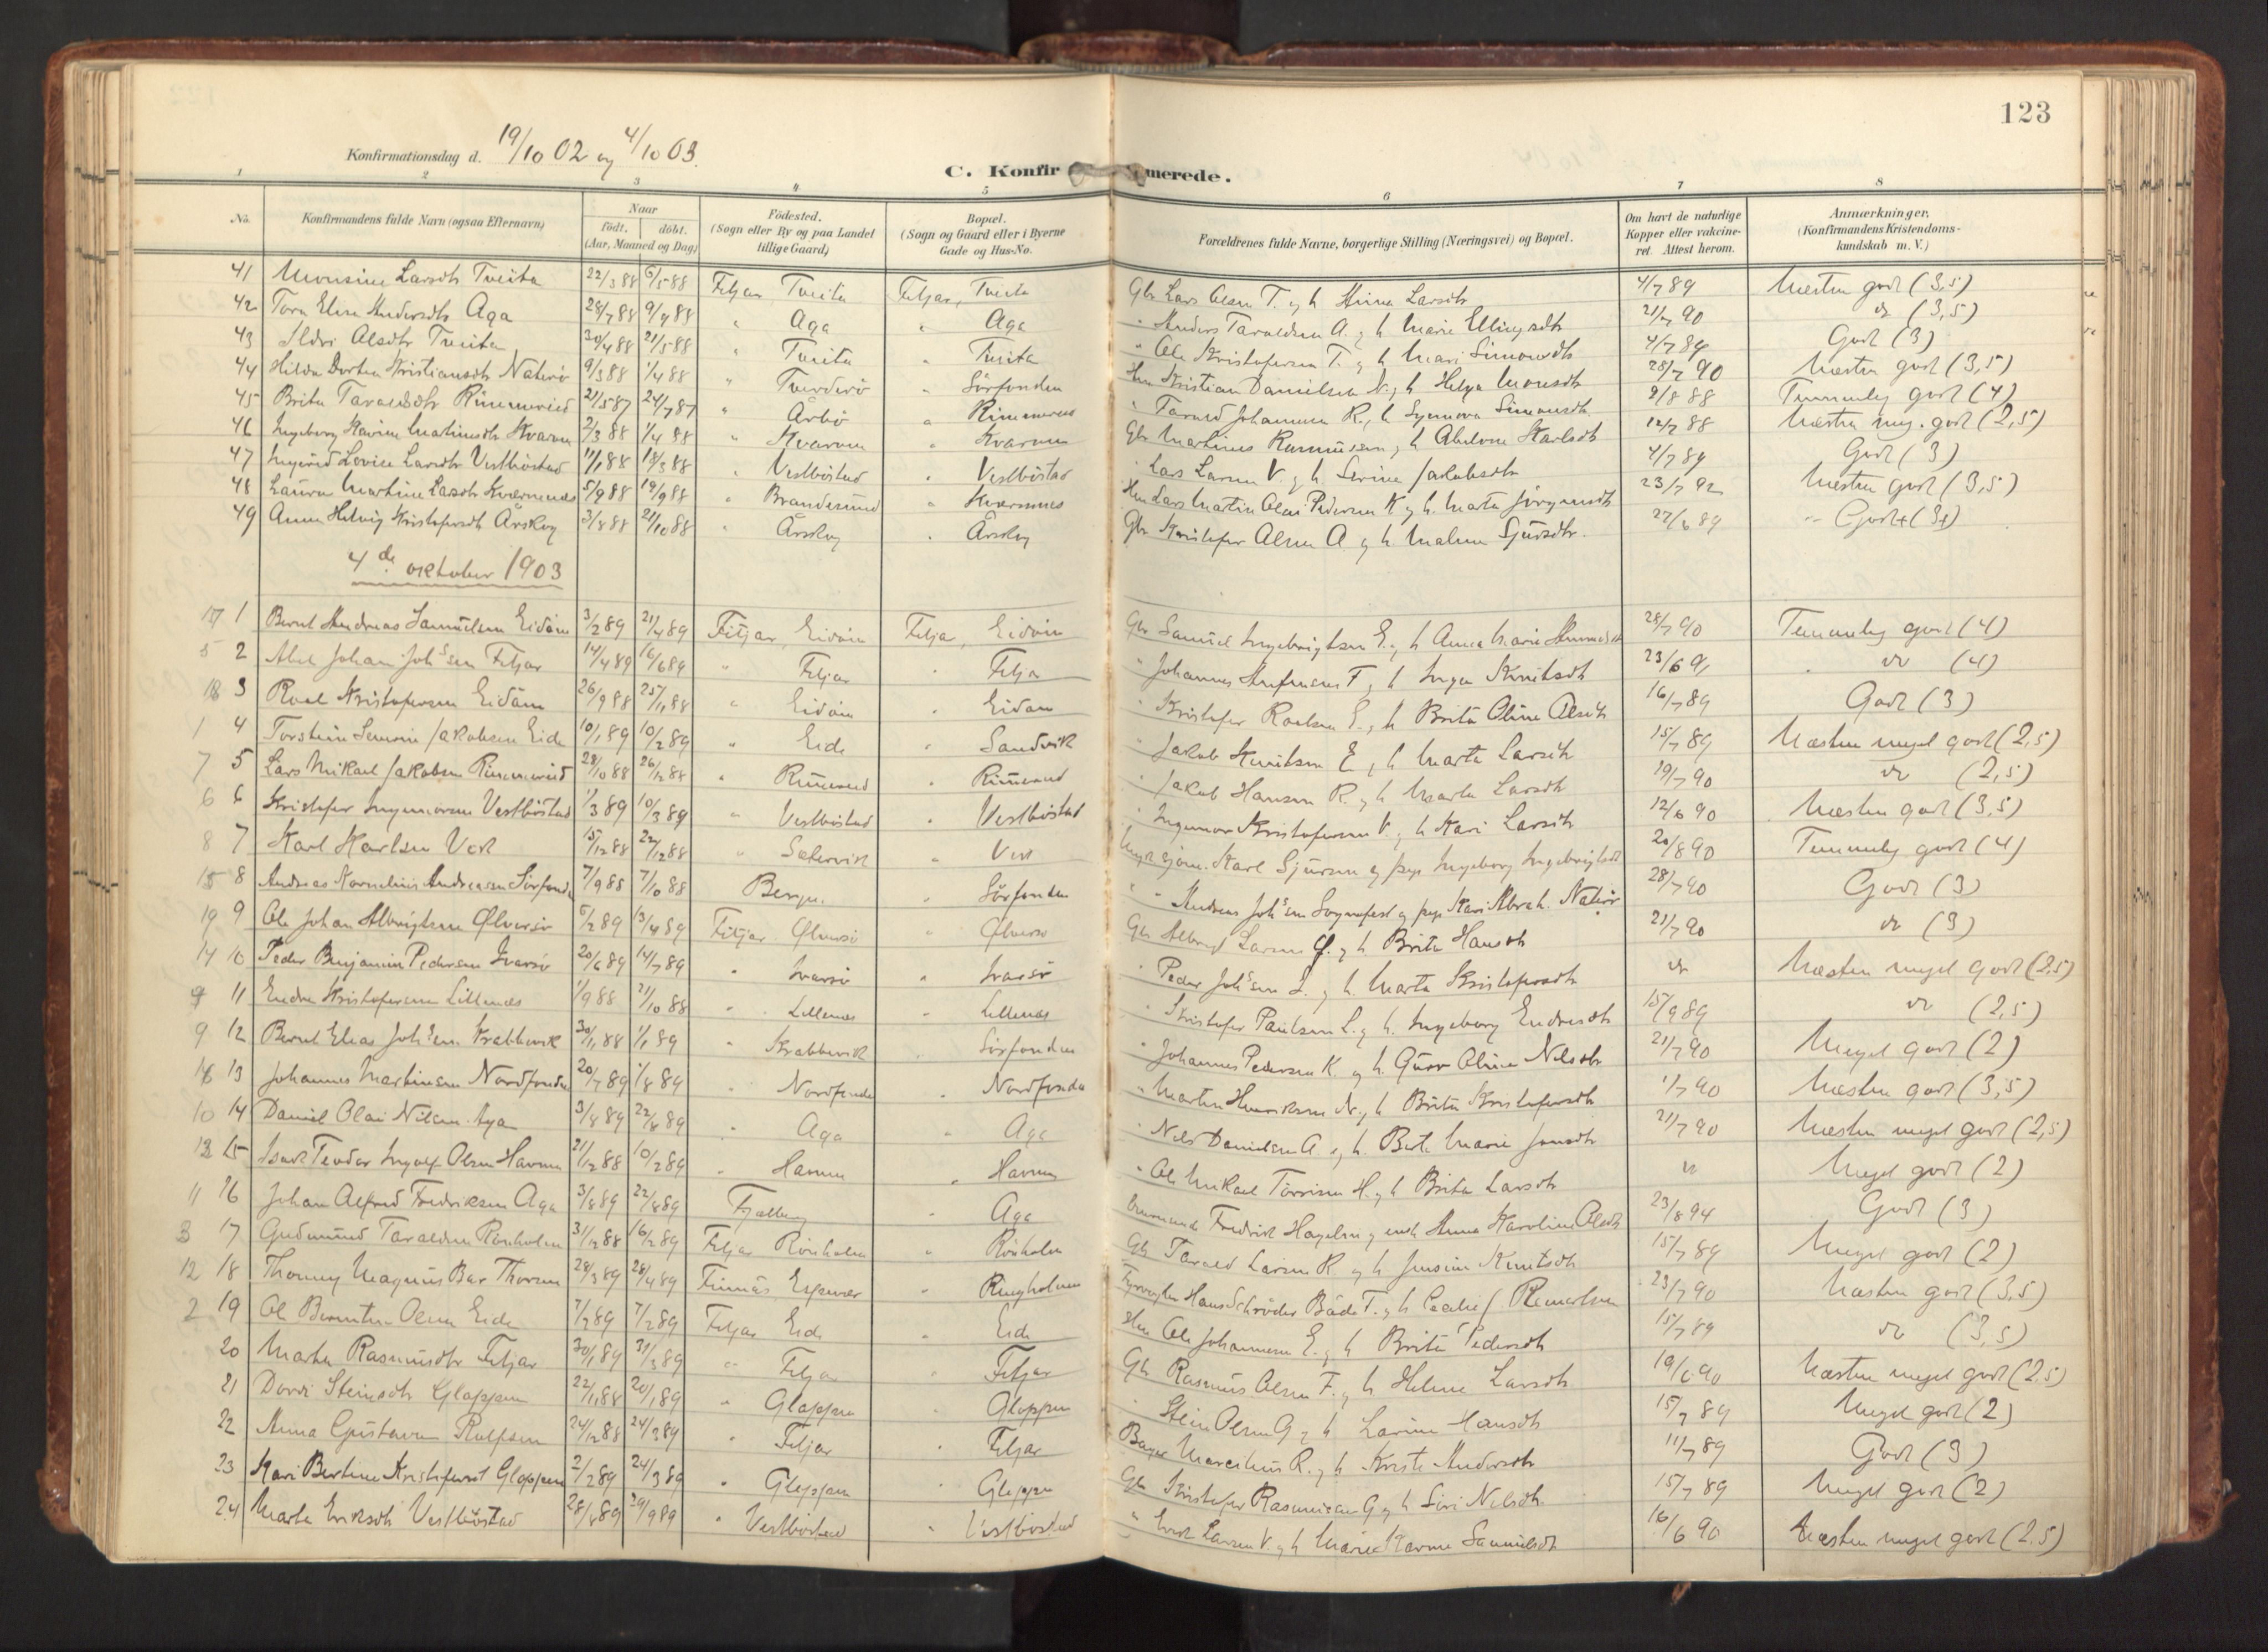 123
Konfirmationsdag d. 19/10 02 og 4/10 03.
C. Konfirmerede.
1 2 3 4 5 6 7 8
No. Konfirmandens fulde Navn (ogsaa Efternavn) Naar født. døbt. (Aar, Maaned og Dag) Fødested. (Sogn eller By og paa Landet tillige Gaard) Bopæl. (Sogn og Gaard eller i Byerne Gade og Hus-No. Forældrenes fulde Navne, borgerlige Stilling (Næringsvei) og Bopæl. Om havt de naturlige Kopper eller vakcineret. Attest herom. Anmærkninger. (Konfirmandens Kristendomskundskab m. V.)
41 Monsine Larsdtr Tveita 22/3 88 6/5 88 Fitjar Tveita Fitjar, Tveita Gbr Lars Olsen T. og h Larsdtr 4/7 89 Næsten godt (3,5)
42 Tora Elisa Andersdtr Aga 28/7 88 9/9 88 " Aga " Aga " Anders Taraldsen A. og h Marie Ellingsdtr 21/7 90 do (3,5)
43 Ildri Olsdtr Tveita 30/4 88 21/5 88 " Tveita " Tveita " Ole Kristofersen T. og h Mari Simonsdtr 4/7 89 Godt (3)
44 Hilda Dortea Kristiansdtr Naterö 9/3 88 1/4 88 " " Sörfonden Hm Kristian Danielsen N. og h Helga Monsdtr 28/7 90 Næsten godt (3,5)
45 Brita Taraldsdtr Rimmereid 21/5 87 24/7 87 " Årbö " Rimmereid " Tarald Johannesen R., h Synnova Simonsdtr 9/8 88 Temmelig godt (4)
46 Ingeborg Karine Martinusdtr Kvarven 2/3 88 1/4 88 " Kvarven " Kvarven Gbr Martinus Rasmussen, h Abelone Karlsdtr 12/7 88 Næsten meg. godt (2,5)
47 Ingerid Lovise Larsdtr Vestböstad 11/1 88 18/3 88 " Vestböstad " Vestböstad " Lars Larsen V. og h. Serine Jakobsdtr 4/7 89 Godt (3)
48 Laura Martine Larsdtr Kværnenes 5/9 88 19/9 88 " Brandasund " Kværnenes Hm Lars Martin Olai Pedersen K og h. Marta Jörgensdtr 23/7 92 Næsten godt (3,5)
49 Anna Helvig Kristofersdtr Årskog 3/8 88 21/10 88 " Årskog " Årskog Gbr Kristofer Olsen A og h. Malene Sjursdtr. 27/6 89 Godt+ (3+)
4de oktober 1903
17 1 Bernt Andreas Samuelsen Eidöin 3/2 89 21/4 89 Fitjar, Eidöin Fitja, Eidöin Gbr Samuel Ingebrigtsen E. og h Anna Marie 28/7 90 Temmelig godt (4)
5 2 Abel Johan Johs'sen Fitjar 14/4 89 16/6 89 " Fitjar " Fitja " Johannes F og h Inga Knutsdtr 23/6 91 do (4)
18 3 Roald Kristofersen Eidöin 26/9 88 25/11 88 " Eidöin " Eidöin " Kristofer Roaldsen E., h Brita Oline Olsdtr 16/7 89 Godt (3)
1 4 Torstein Jakobsen Eide 10/1 89 10/2 89 " Eide " Sandvik " Jakob Knutsen E, h Marta Larsdtr 15/7 89 Næsten meget godt (2,5)
7 5 Lars Mikael Jakobsen Rimmereid 28/10 88 26/12 88 " Rimmereid " Rimmereid " Jakob Hansen R. og h Marta Larsdtr 19/7 90 do (2,5)
6 6 Kristofer Ingemarsen Vestböstad 1/3 89 10/3 89 " Vestböstad " Vestböstad " Ingemar Kristofersen V. og h Kari Larsdtr 12/6 90 Næsten godt (3,5)
8 7 Karl Karlsen Vik 15/12 88 22/12 88 " Sætervik " Vik Ungk. sjöm. Karl Sjursen og pige Ingeborg Ingebrigtsdtr 20/8 90 Temmelig godt (4)
15 8 Andreas Kornelius Andreassen Sörfonden 7/9 88 7/10 88 Bergen " Sörfonden " Andreas Johs'sen Sognefest og pige Kari Abrah. Naterö 28/7 90 Godt (3)
19 9 Ole Johan Albrigtsen Ølversö 5/2 89 13/4 89 Fitjar Ølversö " Ølversö Gbr Albrigt Larsen Ø. og h Brita Hansdtr 21/7 90 do (3)
14 10 Peder Benjamin Pedersen Ivarsö 20/6 89 14/7 89 " Ivarsö " Ivarsö " Peder Johs'sen I. og h. Marta Kristofersdtr do Næsten meget godt (2,5)
4 11 Endre Kristofersen Lillenes 1/9 88 21/10 88 " Lillenes " Lillenes " Kristofer Paulsen L. og h. Ingeborg Endresdtr 15/9 89 do (2,5)
9 12 Bernt Elias Johs'sen Krabbevik 30/11 88 1/1 89 " Krabbevik " Sörfonden " Johannes Pedersen K. og h. Guro Oline Nilsdtr 21/7 90 Meget godt (2)
16 13 Johannes Martinsen Nordfonden 20/7 89 1/8 89 " Nordfonden " Nordfonden " Martin Henriksen N. og h Brita Kristofersdtr 1/7 90 Næsten godt (3,5)
10 14 Daniel Olai Nilsen Aga 3/8 89 22/8 89 " Aga " Aga " Nils Danielsen A og h. Berta Marie Jonsdtr 21/7 90 Næsten meget godt (2,5)
13 15 Isak Teodor Ingolf Olsen Havnen 21/12 88 10/2 89 " Havnen " Havnen " Ole Mikael Törrisen H. og h Brita Larsdtr do Meget godt (2)
11 16 Johan Alfred Fredriksen Aga 3/8 89 22/8 89 Fjælberg " Aga Fredrik Hagelsen og enke Anna Karoline Olsdtr 23/8 94 Godt (3)
3 17 Gudmund Taraldsen Rönholm 31/12 88 16/2 89 Fitjar Rönholm " Rönholm Gbr Tarald Larsen R. og h. Knutsdtr 15/7 89 Meget godt (2)
12 18 Thonny Magnus Bar Thorsen 28/3 89 28/4 89 Finnås Espevær " Ringholmen Fyrvogter Hans Schröder Både T. og h Cecilie J. 23/7 90 Næsten godt (3,5)
2 19 Ole Berentin Olsen Eide 7/2 89 7/2 89 Fitjar Eide " Eide Hm Ole Johannesen E. og h Brita Pedersdtr 15/7 89 do (3,5)
20 Marta Rasmusdtr Fitjar 30/1 89 31/3 89 " Fitjar " Fitjar Gbr Rasmus Olsen F. og h Helene Larsdtr 19/6 90 Næsten meget godt (2,5)
21 Dordi Steinsdtr Gloppen 22/11 88 20/1 89 " Gloppen " Gloppen " Stein Olsen G og h Larine Hansdtr 15/7 89 Meget godt (2)
22 Anna Gustava Rolfsen 24/12 88 24/3 89 " Fitjar " Fitjar Bager Marcelius R. og h Kristi Andersdtr 11/7 89 Godt (3)
23 Kari Bertine Kristofersd Gloppen 2/2 89 24/3 89 " Gloppen " Gloppen Gbr Kristofer Rasmussen G og h Siri Nilsdtr 15/7 89 Meget godt (2)
24 Marta Eriksdtr Vestböstad 28/8 89 29/9 89 " Vestböstad " Vestböstad " Erik Larsen V. og h Marie Karine Samuelsdtr 16/6 90 Næsten meget godt (2,5)